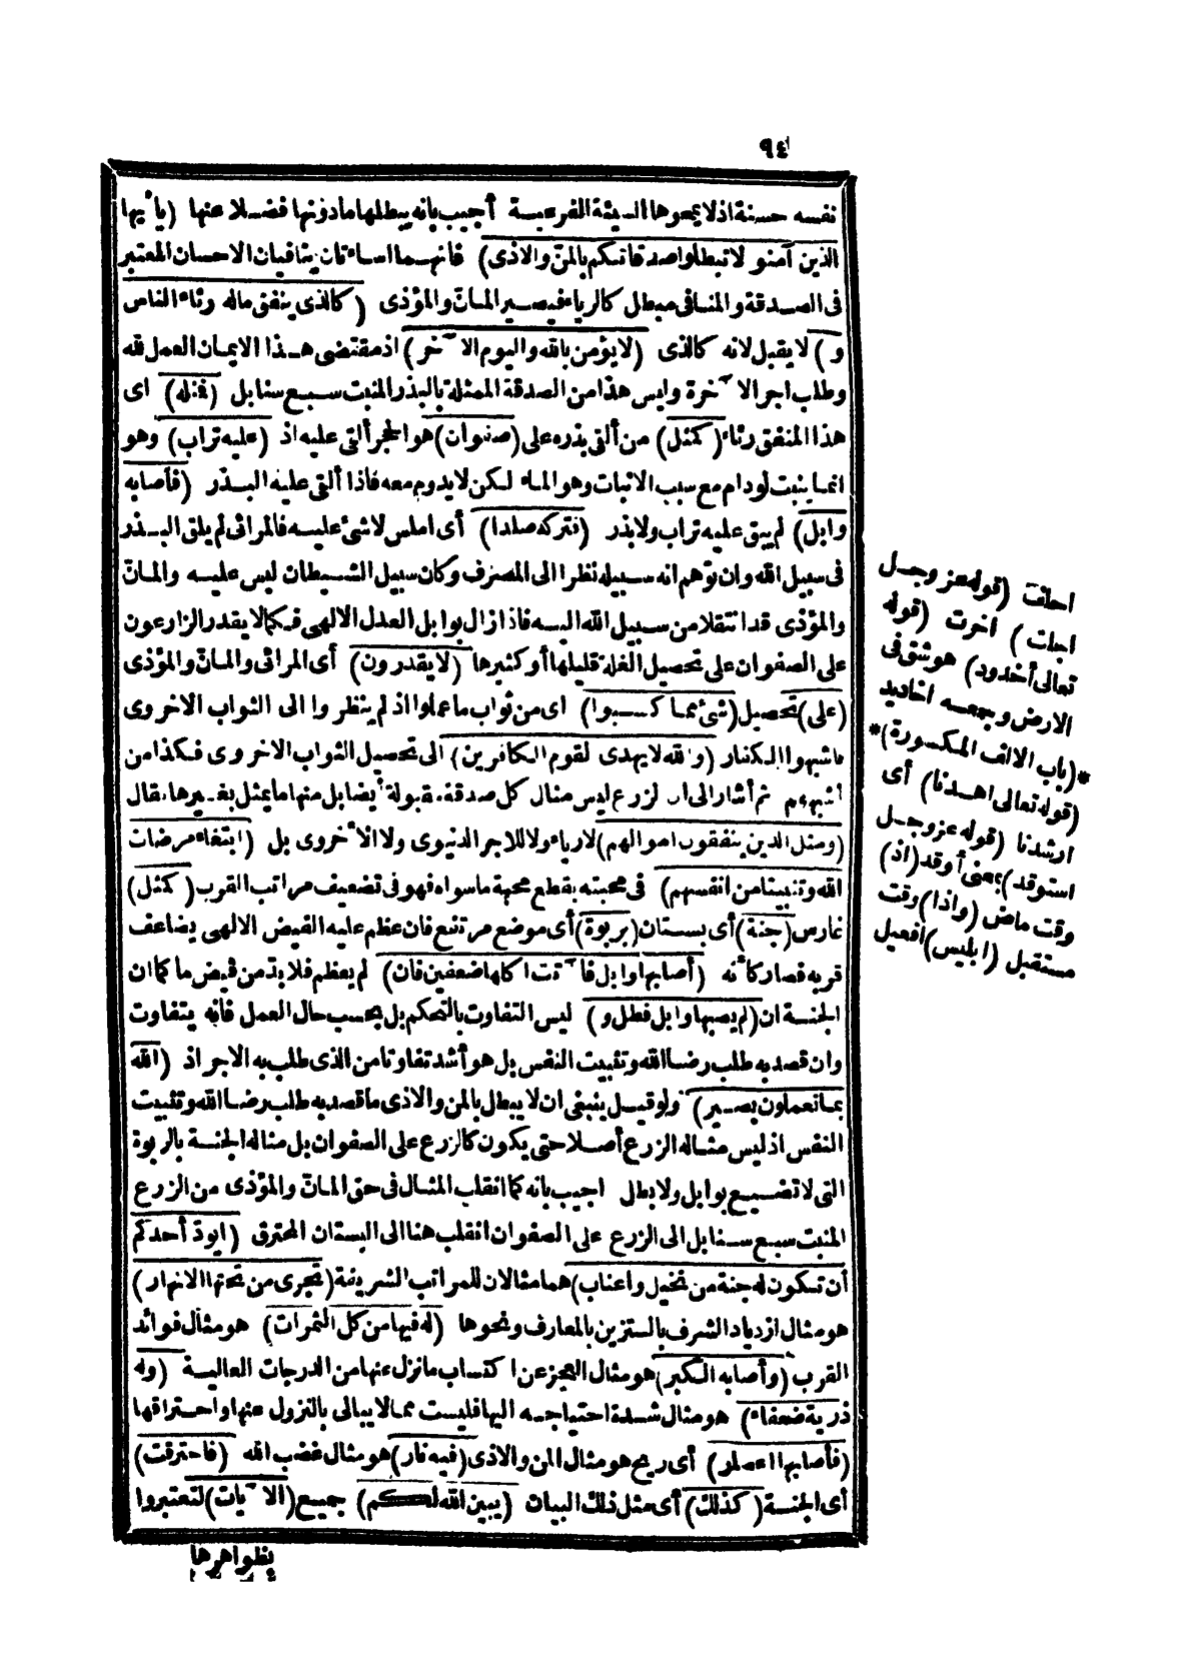 ٩٤
نفسه حسنة اذلا يمحوها السيئة الفرعية أجيب بانه يبطلها مادونها فضلا عنها (ياأيها
الذين آمنو لاتبطلوا صدقاتكم بالمن والاذى) فانهما اساءتان ينافيان الاحسان المعتبر
فى الصدقة والمنافى مبطل كالرياء فيصير المانّ والمؤذى (كالذى ينفق ماله رئاء الناس
و) لا يقبل لانه كالذى (لا يؤمن بالله واليوم الآخر) اذ مقتضى هذا الايمان العمل لله
وطلب اجر الآخرة وليس هذا من الصدقة الممثلة بالبذر المنبت سبع سنابل (فمثله) اى
هذا المنفق رئاء (كمثل) من ألقى بذره على (صفوان) هو الحجر ألقى عليه اذ (عليه تراب) وهو
انما ينبت لو دام مع سبب الانبات وهو الماء لكن لايدوم معه فاذا ألقى عليه البذر (فأصابه
وابل) لم يبق عليه تراب ولابذر (فتركه صلدا) أى املس لاشئ عليه فالمرائى لم يلق البذر
فى سبيل الله وان توهم انه سبيله نظرا الى المصرف وكان سبيل الشيطان ليس عليه والمانّ
والمؤذى قد انتقلا من سبيل الله اليه فاذا زال بوابل العدل الالهى فكما لا يقدر الزارعون
على الصفوان على تحصيل الغلة قليلها أو كثيرها (لايقدرون) أى المرائى والمانّ والمؤذى
(على) تحصيل (شئ مما كسبوا) اى من ثواب ما عملوا اذ لم ينظروا الى الثواب الاخروى
فاشبهوا الكفار (والله لايهدى لقوم الكافرين) الى تحصيل الثواب الاخروى فكذا من
أشبههم ثم أشار الى ان لزرع ليس مثال كل صدقة مقبولة أيضا بل منها ما يمثل بغيرها، فقال
(ومثل الذين ينفقون اموالهم) لارياء ولا للاجر الدنيوى ولا الأخروى بل (ابتغاء مرضات
الله وتثبيتا من انفسهم) فى محبته بقطع محبة ماسواه فهو فى تضعيف مراتب القرب (كمثل)
غارس (جنة) أى بستان (بربوة) أى موضع مرتفع فان عظم عليه الفيض الالهى يضاعف
قربه فصار كأنه (أصابها وابل فآتت اكلها ضعفين فان) لم يعظم فلا بد من فيض ما كما ان
الجنة ان (لم يصبها وابل فطل و) ليس التفاوت بالتحكم بل بحسب حال العمل فانه يتفاوت
وان قصد به طلب رضا الله وتثبيت النفس بل هو أشد تفاوتا من الذى طلب به الاجر اذ (الله
بما تعملون بصير) ولو قيل ينبغى ان لا يبطل بالمن والاذى ما قصد به طلب رضا الله وتثبيت
النفس اذ ليس مثاله الزرع أصلا حتى يكون كالزرع على الصفوان بل مثاله الجنة بالربوة
التى لا تضيع بوابل ولا بطل اجيب بانه كما انقلب المثال فى حق المانّ والمؤذى من الزرع
المنبت سبع سنابل الى الزرع على الصفوان انقلب هنا الى البستان المحترق (ايودّ أحدكم
أن تكون له جنة من نخيل واعناب) هما مثالان للمراتب الشريفة (تجرى من تحتها الانهار)
هو مثال ازدياد الشرف بالتزين بالمعارف ونحوها (له فيها من كل الثمرات) هو مثال فوائد
القرب (وأصابه الكبر) هو مثال العجز عن اكتساب ما نزل عنها من الدرجات العالية (وله
ذرية ضعفاء) هو مثال شدة احتياجه اليها فليست مما لايبالى بالنزول عنها واحتراقها
(فأصابها اعصار) أى ريح هو مثال المن والاذى (فيه نار) هو مثال غضب الله (فاحترقت)
أى الجنة (كذلك) أى مثل ذلك البيان (يبين الله لكم) جميع (الآيات) لتعتبروا
بظواهرها
احلت (قوله عز وجل
اجلت) اخرت (قوله
تعالى أخدود) هو شق فى
الارض وجمعه اخاديد
*(باب الالف المكسورة)*
(قوله تعالى اهدنا) أى
ارشدنا (قوله عز وجل
استوقد) بمعنى أوقد (اذ)
وقت ماض (واذا) وقت
مستقبل (ابليس) افعيل